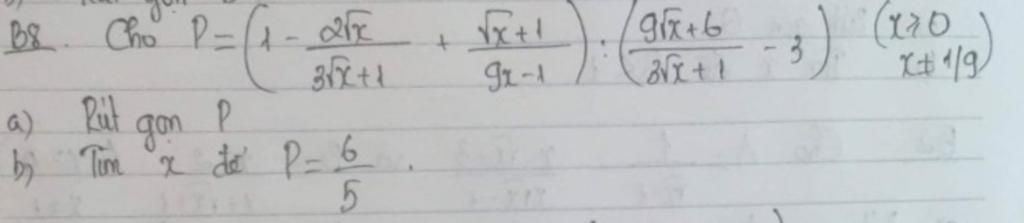 B8. Cho P = (1 - 2√x / 3√x+1 + √x+1 / 9x-1) : (9√x+6 / 3√x+1 - 3) (x⩾0
x≠1/9)
a) Rút gọn P
b) Tìm x để P = 6/5.